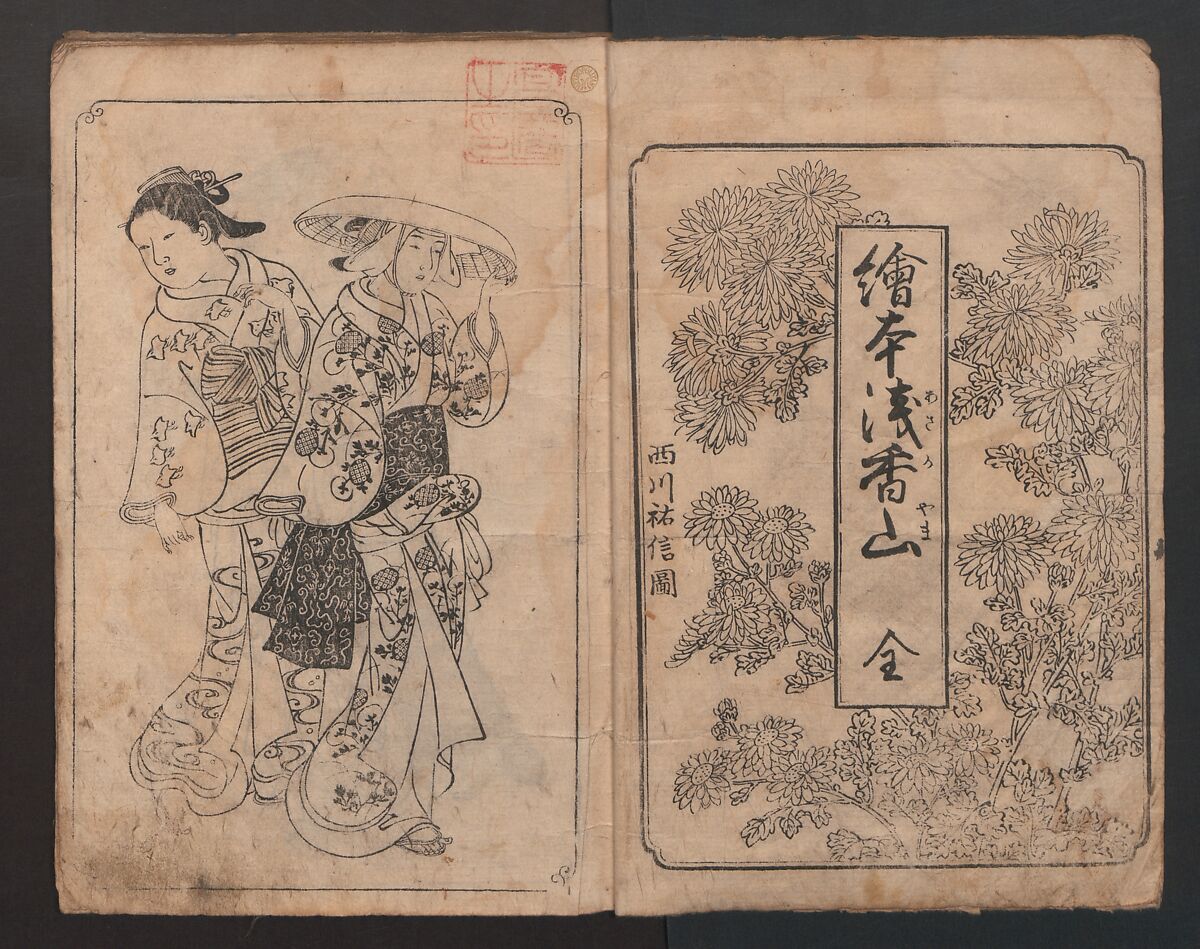 繪本淺香山 全
あさかやま
西川祐信圖